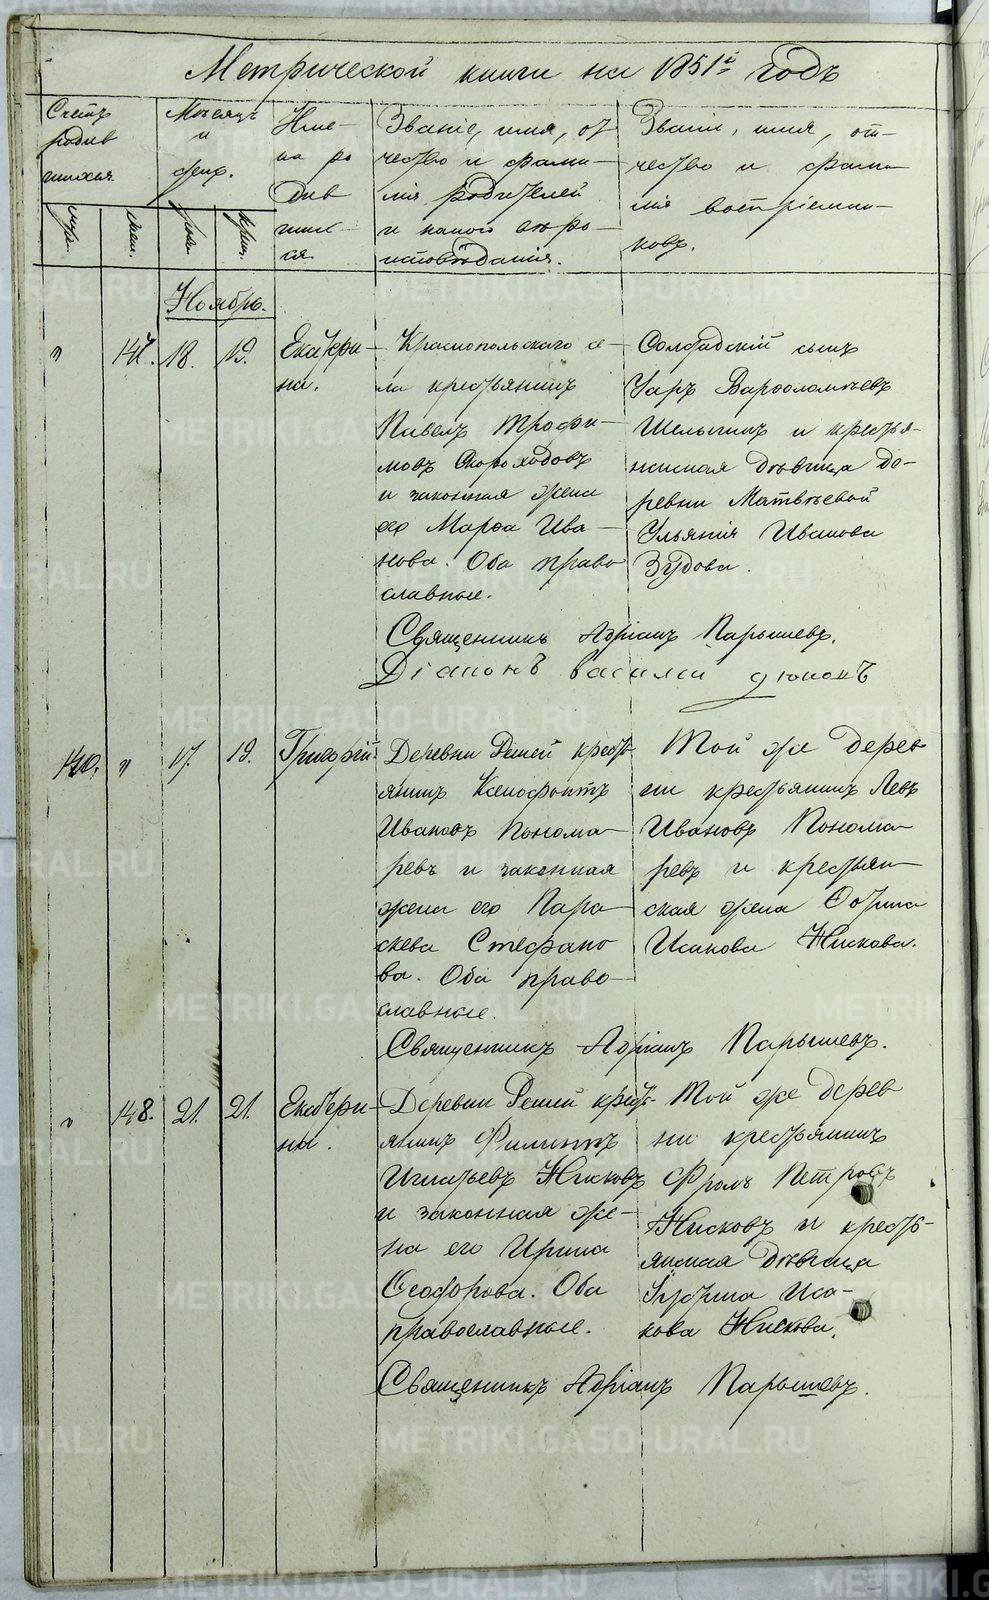 Метрической книги на 1851й годъ
Счетъ родив шихся.
муж.
жен.
Мѣсяцъ и день.
рож.
крещ.
Име-
на ро
див
ших-
ся.
Званіе, имя, от
чество и фами-
лія родителей
и какого вѣро-
исповѣданія.
Званіе, имя, от-
чество и фами
лія воспріемни-
ковъ.
Ноябрь.
" 147. 18. 19.
Екатери-
на.
Краснопольскаго се
ла крестьянинъ
Павелъ Трофи-
мовъ Скороходовъ
и законная жена
его Марѳа Ива-
нова. Оба право
славные.
Солдадскій сынъ
Уаръ Варѳоломѣевъ
Шелыгинъ и крестья-
нская дѣвица де-
ревни Матвѣевой
Ульянія Иванова
Зудова.
Священникъ Адріанъ Парышевъ.
Діаконъ Василей
140. " 17. 19.
Григорій.
Деревни Решей крест-
янинъ Ксенофонтъ
Ивановъ Понома-
ревъ и законная
жена его Пара-
скева Стефано
ва. Оба право-
славные.
Той же дерев
ни крестьянинъ Левъ
Ивановъ Понома-
ревъ и крестьян-
ская жена
Исакова Нискова.
Священникъ Адріанъ Парышевъ.
" 148. 21. 21.
Екатери-
на.
Деревни Решей крест-
янинъ Филиппъ
Игнатьевъ Нисковъ
и законная же-
на его Ирина
Ѳеодорова. Оба
православные.
Той же дерев
ни крестьянинъ
Фролъ Петровъ
Нисковъ и кресть-
янская дѣвица
Иса-
кова Нискова.
Священникъ Адріанъ Парышевъ.
METRIKI.GASO-URAL.RU